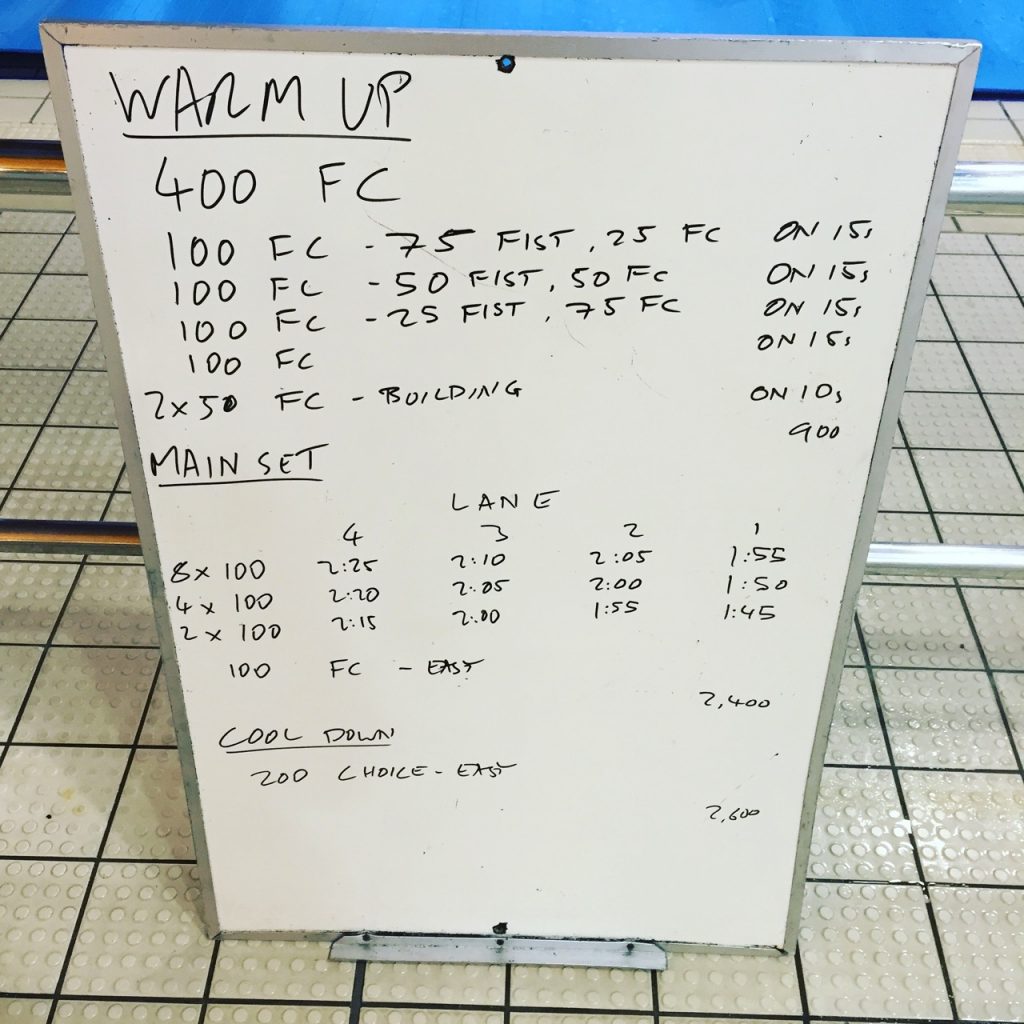 WARM UP
400 FC
100 FC - 75 FIST, 25 FC ON 15s
100 FC - 50 FIST, 50 FC ON 15s
100 FC - 25 FIST, 75 FC ON 15s
100 FC ON 15s
2x50 FC - BUILDING ON 10s
900
MAIN SET
LANE
4 3 2 1
8x 100 2:25 2:10 2:05 1:55
4 x 100 2:20 2:05 2:00 1:50
2 x 100 2:15 2:00 1:55 1:45
100 FC - EASY
2,400
COOL DOWN
200 CHOICE - EASY
2,600